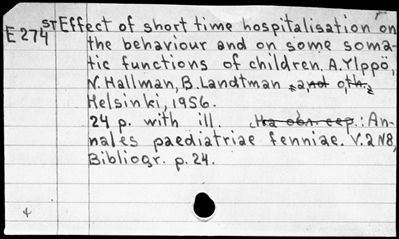 STEffect of short time hospitalisation on
E 274 the behaviour and on some soma-
tic functions of children. A. Ylppö,
N. Hallman, B. Landtman and oth.
Helsinki, 1956.
24 p. with ill. На обл. сер.: An-
nales paediatriae fenniae. V.2 N8,
Bibliogr. p. 24.